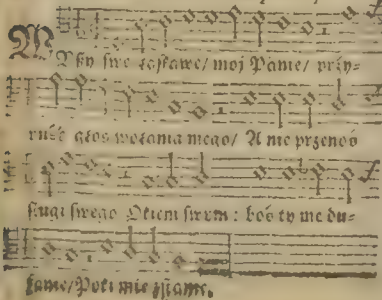 swe łaskawe/ moj Panie/ przy-
głos wołania mego/ A nie przenoś
sługi swego Okiem swym: boś ty me du-
fanie/ Poki mie zstanie.